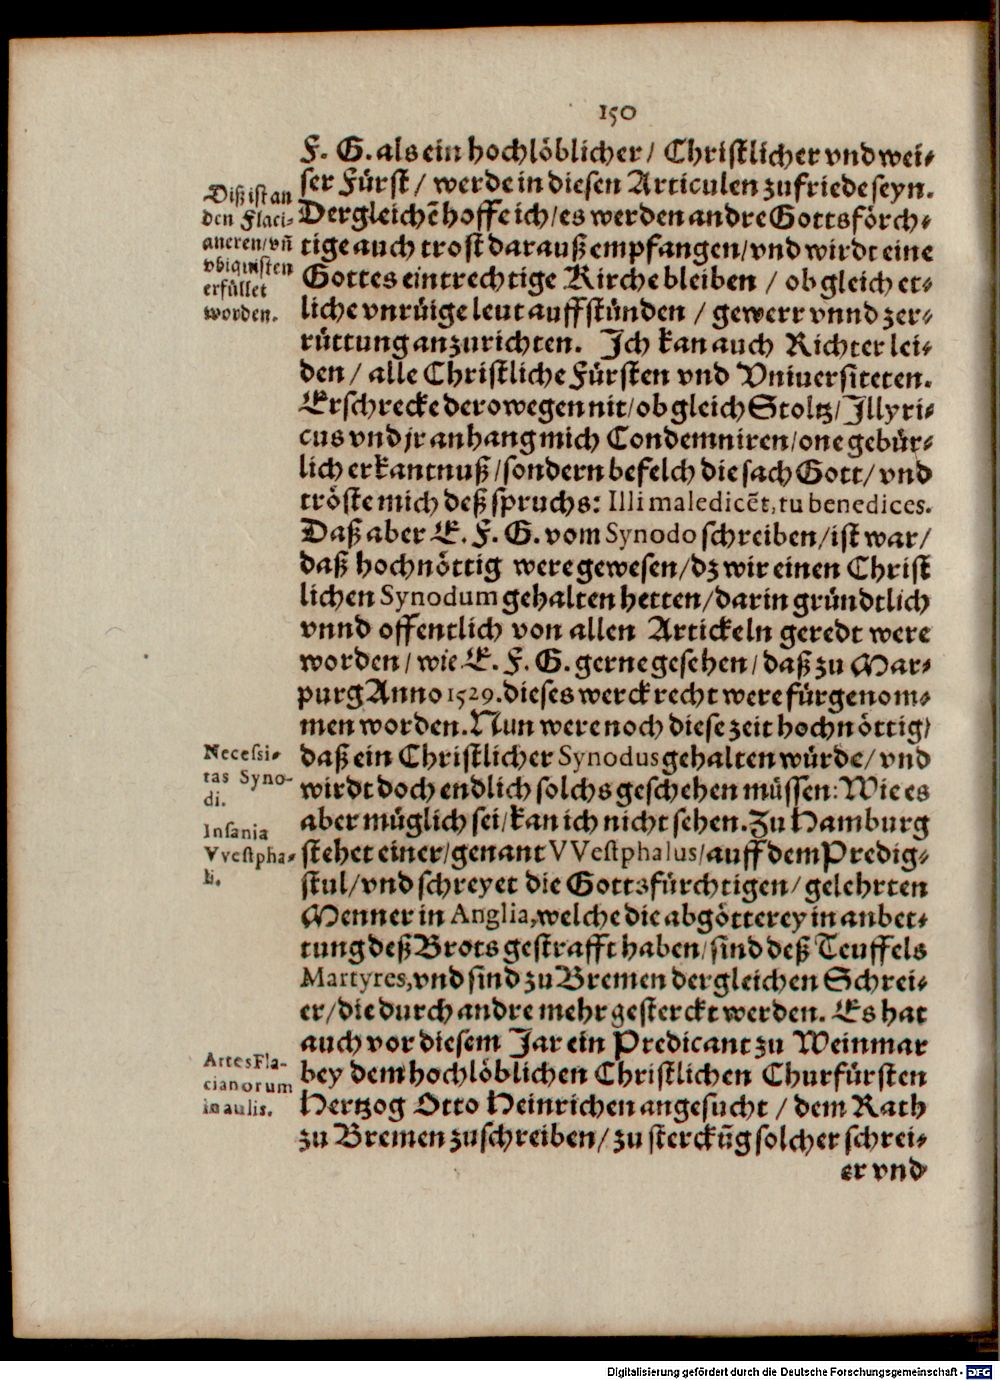 150
F. G. als ein hochlöblicher / Christlicher vnd wei-
ser Fürst / werde in diesen Articulen zu friede seyn.
Dergleichē hoffe ich / es werden andre Gottsförch-
tige auch trost darauß empfangen / vnd wirdt eine
Gottes eintrechtige Kirche bleiben / ob gleich et-
liche vnrüige leut auffstünden / gewerr vnnd zer-
rüttung anzurichten. Ich kan auch Richter lei-
den / alle Christliche Fürsten vnd Vniuersiteten.
Erschrecke derowegen nit / ob gleich Stoltz / Illyri-
cus vnd jr anhang mich Condemniren / one gebür-
lich erkantnuß / sondern befelch die sach Gott / vnd
tröste mich deß spruchs: Illi maledicēt, tu benedices.
Daß aber E. F. G. vom Synodo schreiben / ist war /
daß hochnöttig were gewesen / dz wir einen Christ
lichen Synodum gehalten hetten / darin gründtlich
vnnd offentlich von allen Artickeln geredt were
worden / wie E. F. G. gerne gesehen / daß zu Mar-
purg Anno 1529. dieses werck recht were fürgenom-
men worden. Nun were noch diese zeit hochnöttig /
daß ein Christlicher Synodus gehalten würde / vnd
wirdt doch endlich solchs geschehen müssen: Wie es
aber müglich sei / kan ich nicht sehen. Zu Hamburg
stehet einer / genant VVestphalus / auff dem Predig-
stul / vnd schreyet die Gottsfürchtigen / gelehrten
Menner in Anglia, welche die abgötterey in anbet-
tung deß Brots gestrafft haben / sind deß Teuffels
Martyres, vnd sind zu Bremen dergleichen Schrei-
er / die durch andre mehr gesterckt werden. Es hat
auch vor diesem Jar ein Predicant zu Weinmar
bey dem hochlöblichen Christlichen Churfürsten
Hertzog Otto Heinrichen angesucht / dem Rath
zu Bremen zuschreiben / zu sterckūg solcher schrei-
er vnd
Diß ist an
den Flaci-
aneren / vn̄
vbiquisten
erfüllet
worden.
Necessi-
tas Syno-
di.
Insania
VVestpha-
li.
Artes Fla-
cianorum
in aulis.
Digitalisierung gefördert durch die Deutsche Forschungsgemeinschaft - DFG